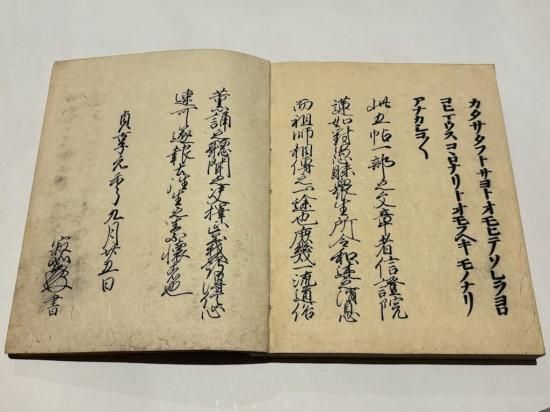 カタサタフトサヨトオモヒテソレヲヨロ
コヒマウスコヽロナリトオモフヘキモノナリ
アナカシコ〱
此五帖一部之文章者信證院
蓮如對愚昧衆生所令和述之消息
而祖師相傳之一途也庶幾一流道俗
薫誦之聽聞之文
速可遂報土往生之素懷者也
貞享元年九月廿五日
寂如書